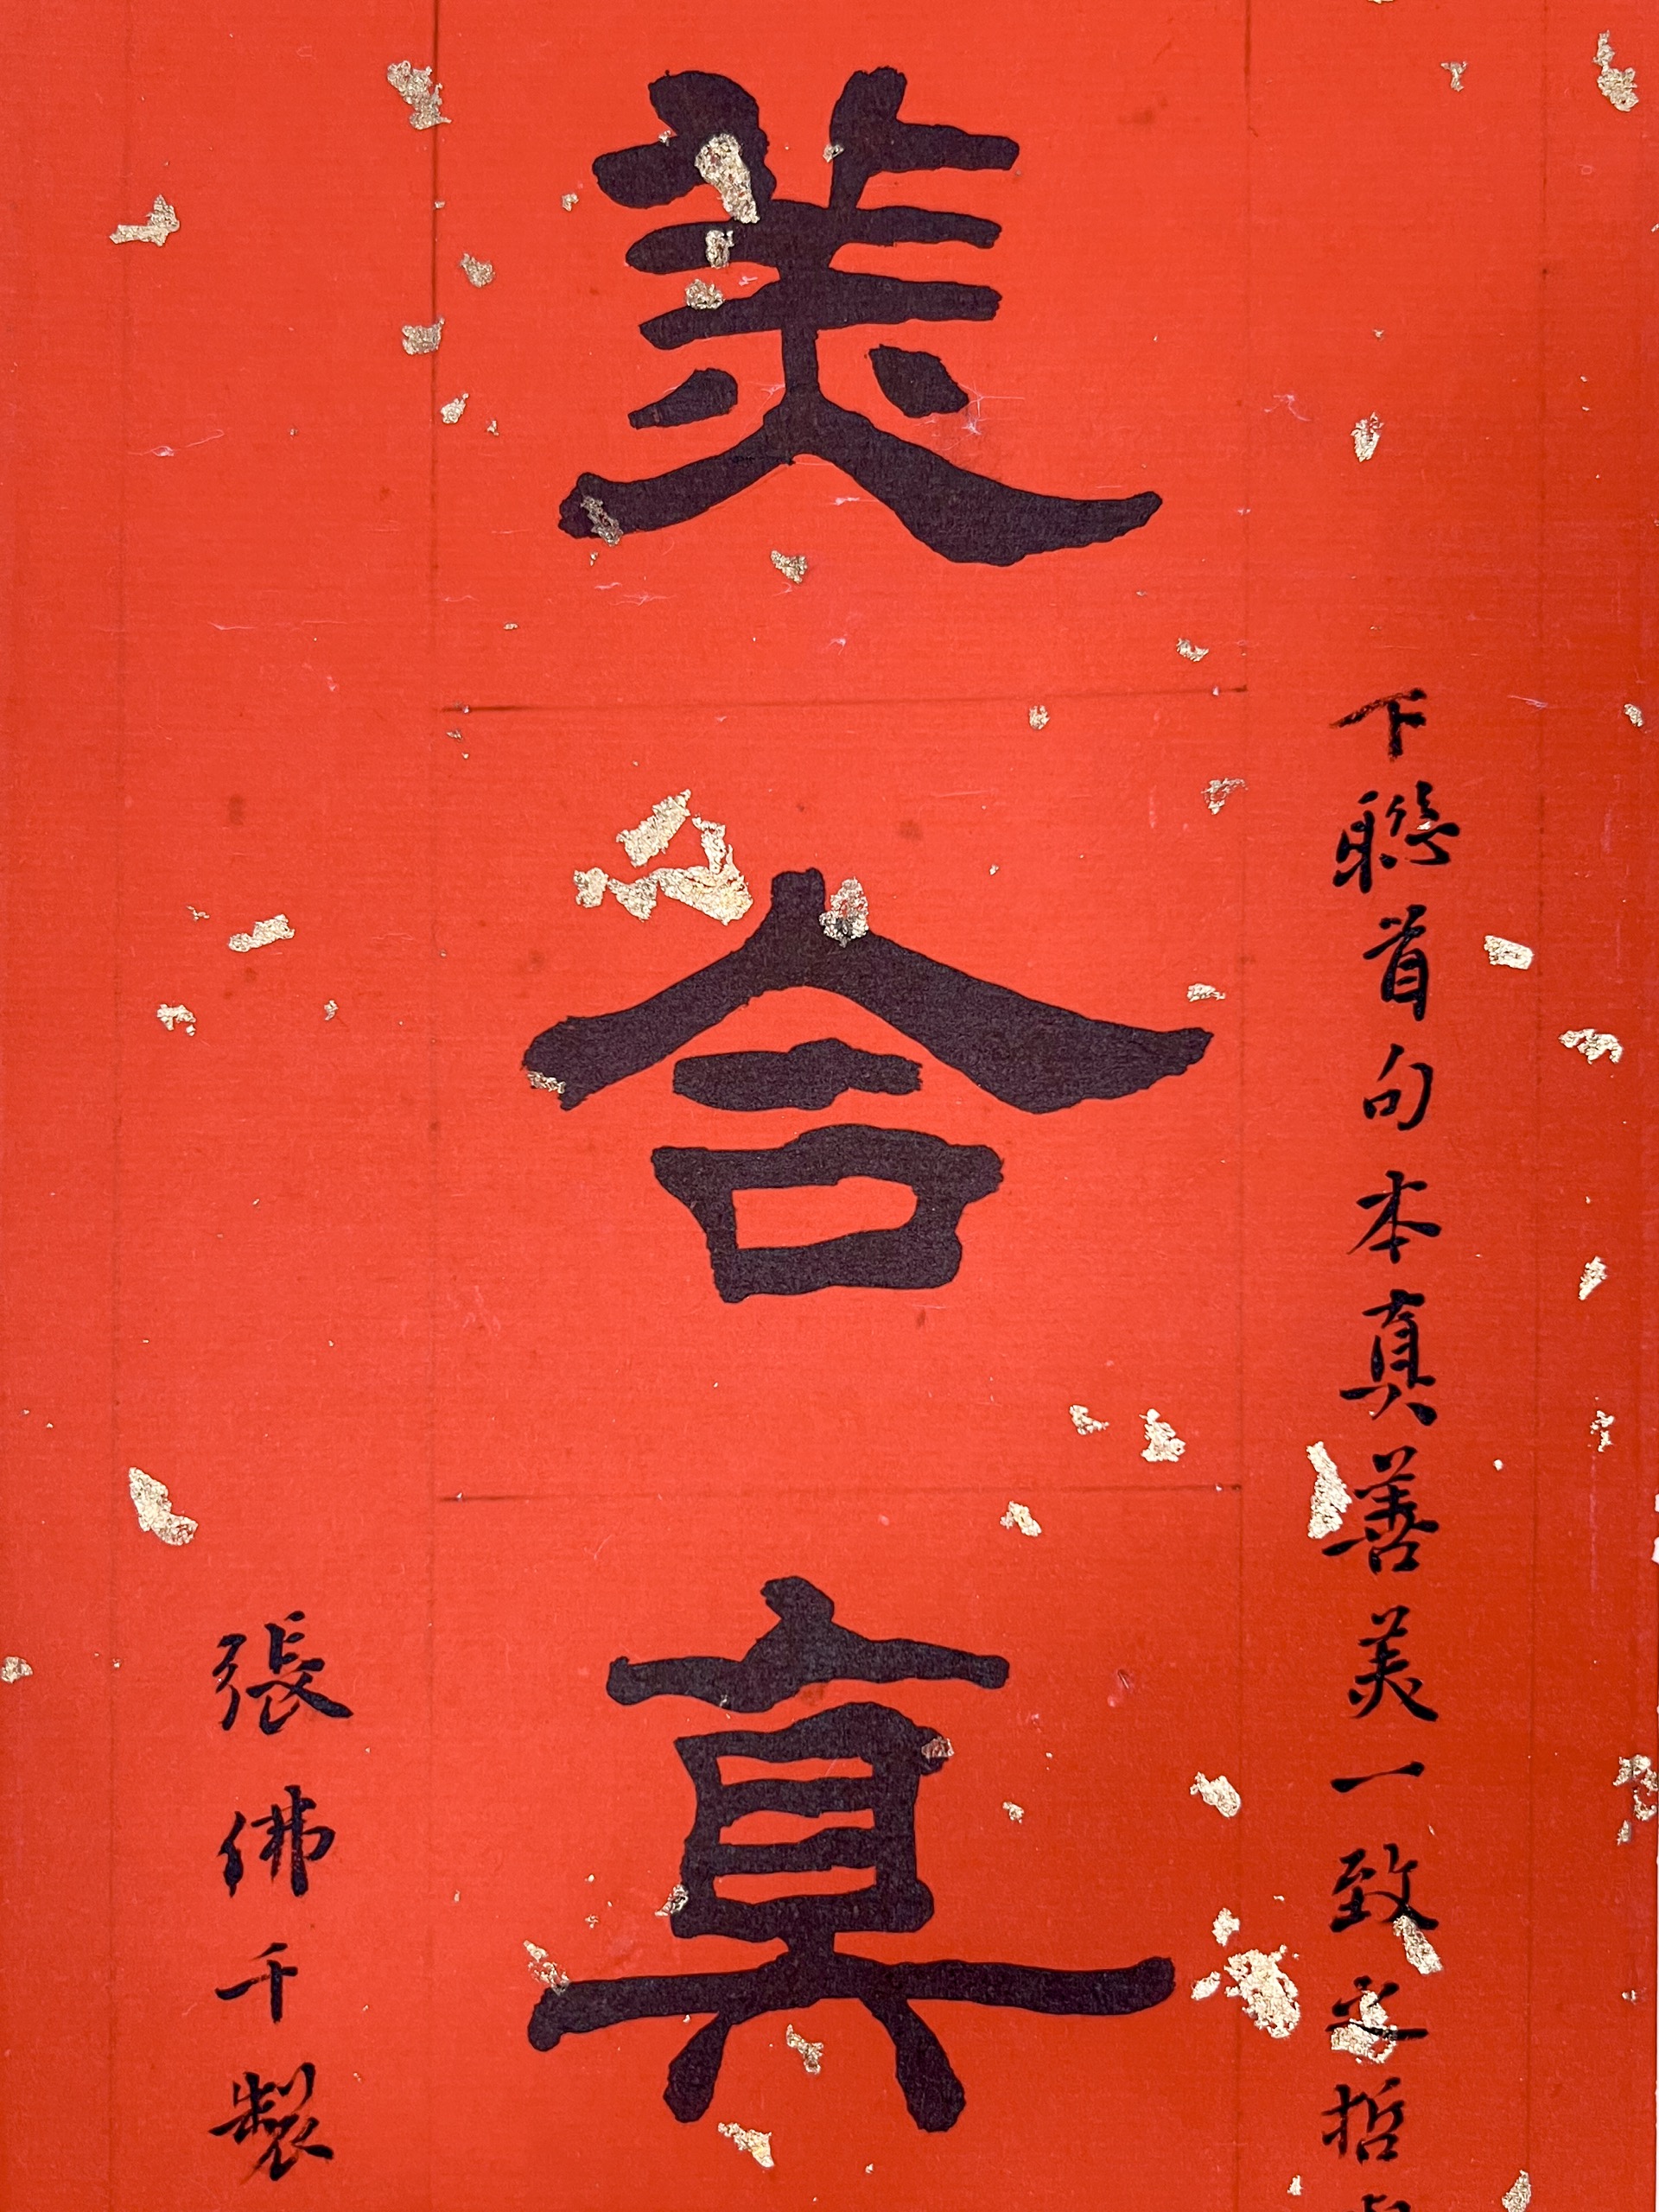 下聯首句本真善美一致之哲
美合真
張佛千製